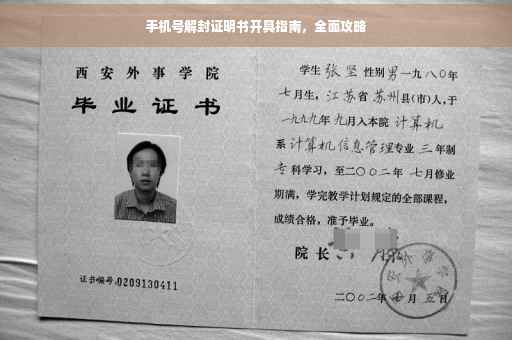 手机号解封证明书开具指南，全面攻略
西安外事学院
毕业证书
证书编号:0209130411
学生 张坚 性别男一九八〇年
七月生，江苏省苏州县(市)人,于
一九九九年九月入本院 计算机
系计算机信息管理专业 三 年制
专科学习，至二〇〇二年 七月修业
期满，学完教学计划规定的全部课程，
成绩合格，准予毕业。
院长
二〇〇二年 月五日